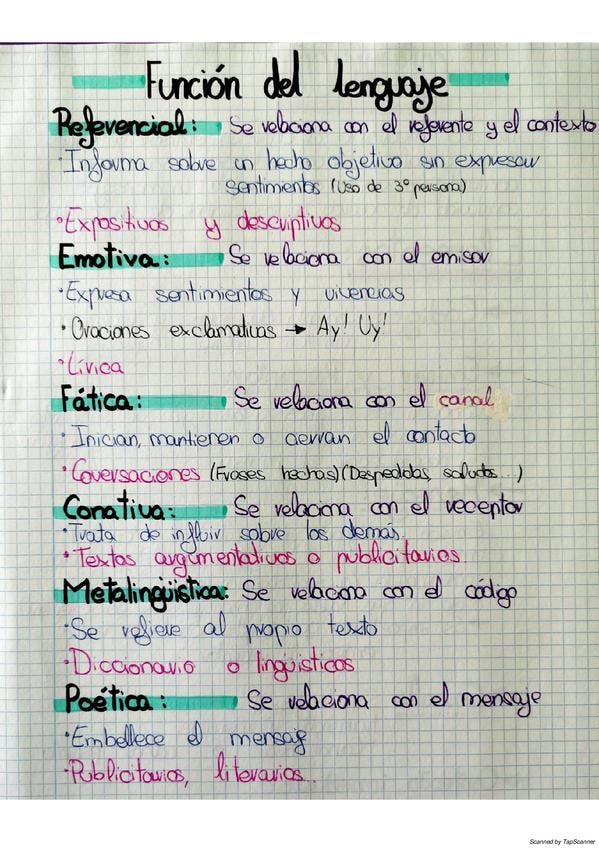 Función del lenguaje
Referencial: Se relaciona con el referente y el contexto
·Informa sobre un hecho objetivo sin expresar
sentimientos (Uso de 3º persona)
·Expositivos y descriptivos
Emotiva: Se relaciona con el emisor
·Expresa sentimientos y vivencias
·Oraciones exclamativas → Ay! Uy!
·Lírica
Fática: Se relaciona con el canal
·Inician, mantienen o cierran el contacto
·Coversaciones (Frases hechas) (Despedidas, saludos...)
Conativa: Se relaciona con el receptor
·Trata de influir sobre los demás.
·Textos argumentativos o publicitarios
Metalingüistica: Se relaciona con el código
·Se refiere al propio texto
·Diccionario o lingüisticos
Poética: Se relaciona con el mensaje
·Embellece el mensaj
·Publicitarios, literarios...
Scanned by TapScanner